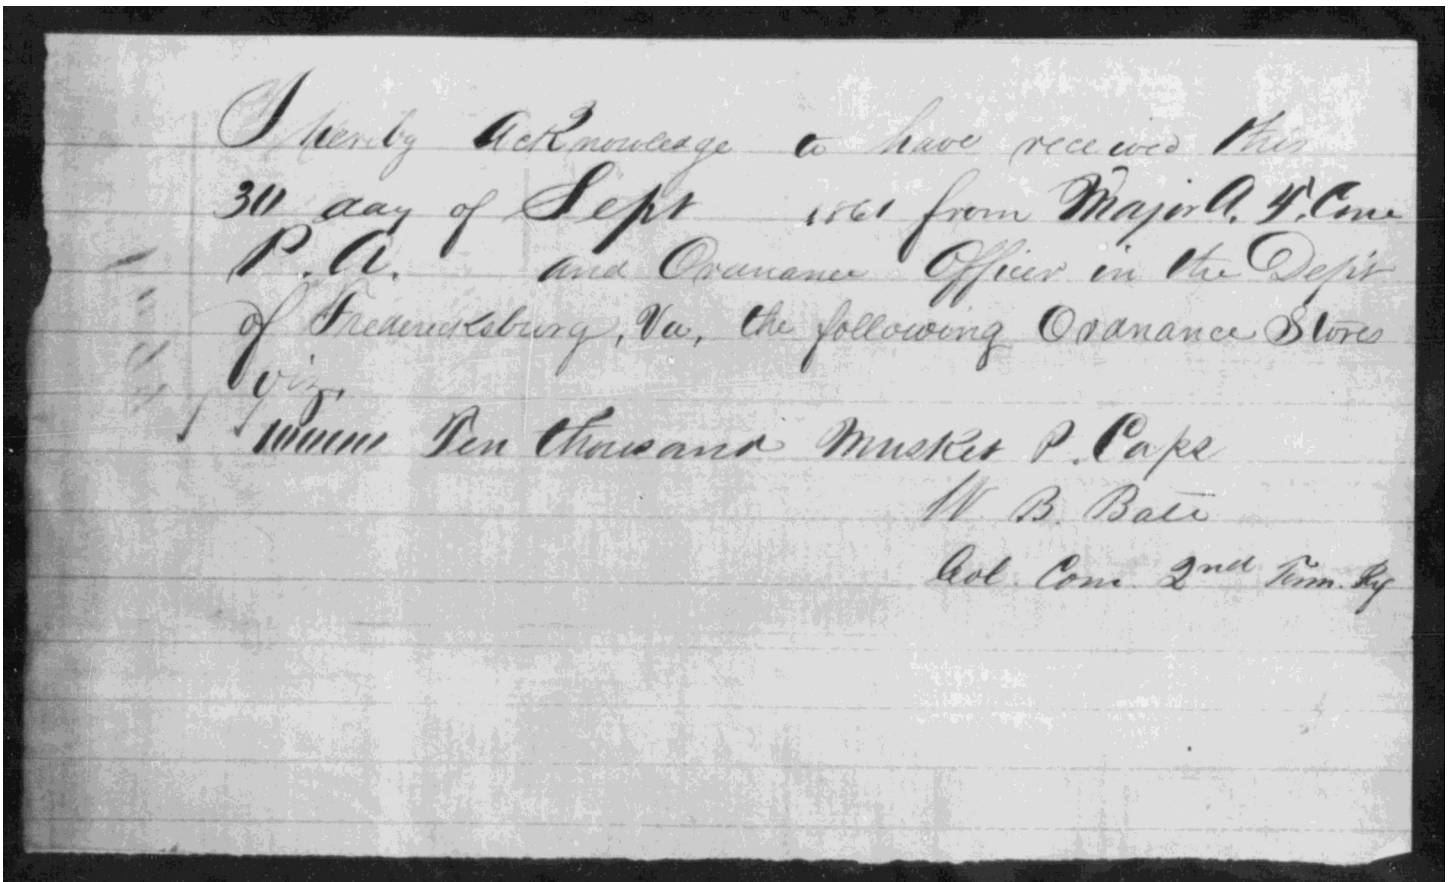 I hereby Acknowledge to have received this
30 day of Sept 1861 from Major A. F. Cone
P. A. and Ordnance Officer in the Dept
of Fredericksburg, Va, the following Ordnance Stores
viz,
Ten thousand Musket P. Caps
W B. Bate
Col Com 2nd Tenn. Rg